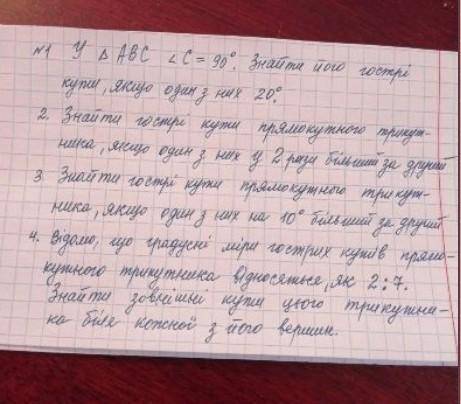 №1 У △ ABC ∠C = 90°. Знайти його гострі
кути, якщо один з них 20°.
2. Знайти гострі кути прямокутного трикут-
ника, якщо один з них у 2 рази більший за другий
3 Знайти гострі кути прямокутного трикут-
ника, якщо один з них на 10° більший за другий
4. Відомо, що градусні міри гострих кутів прямо-
кутного трикутника відносяться, як 2:7.
Знайти зовнішні кути цього трикутни-
ка біля кожної з його вершин.